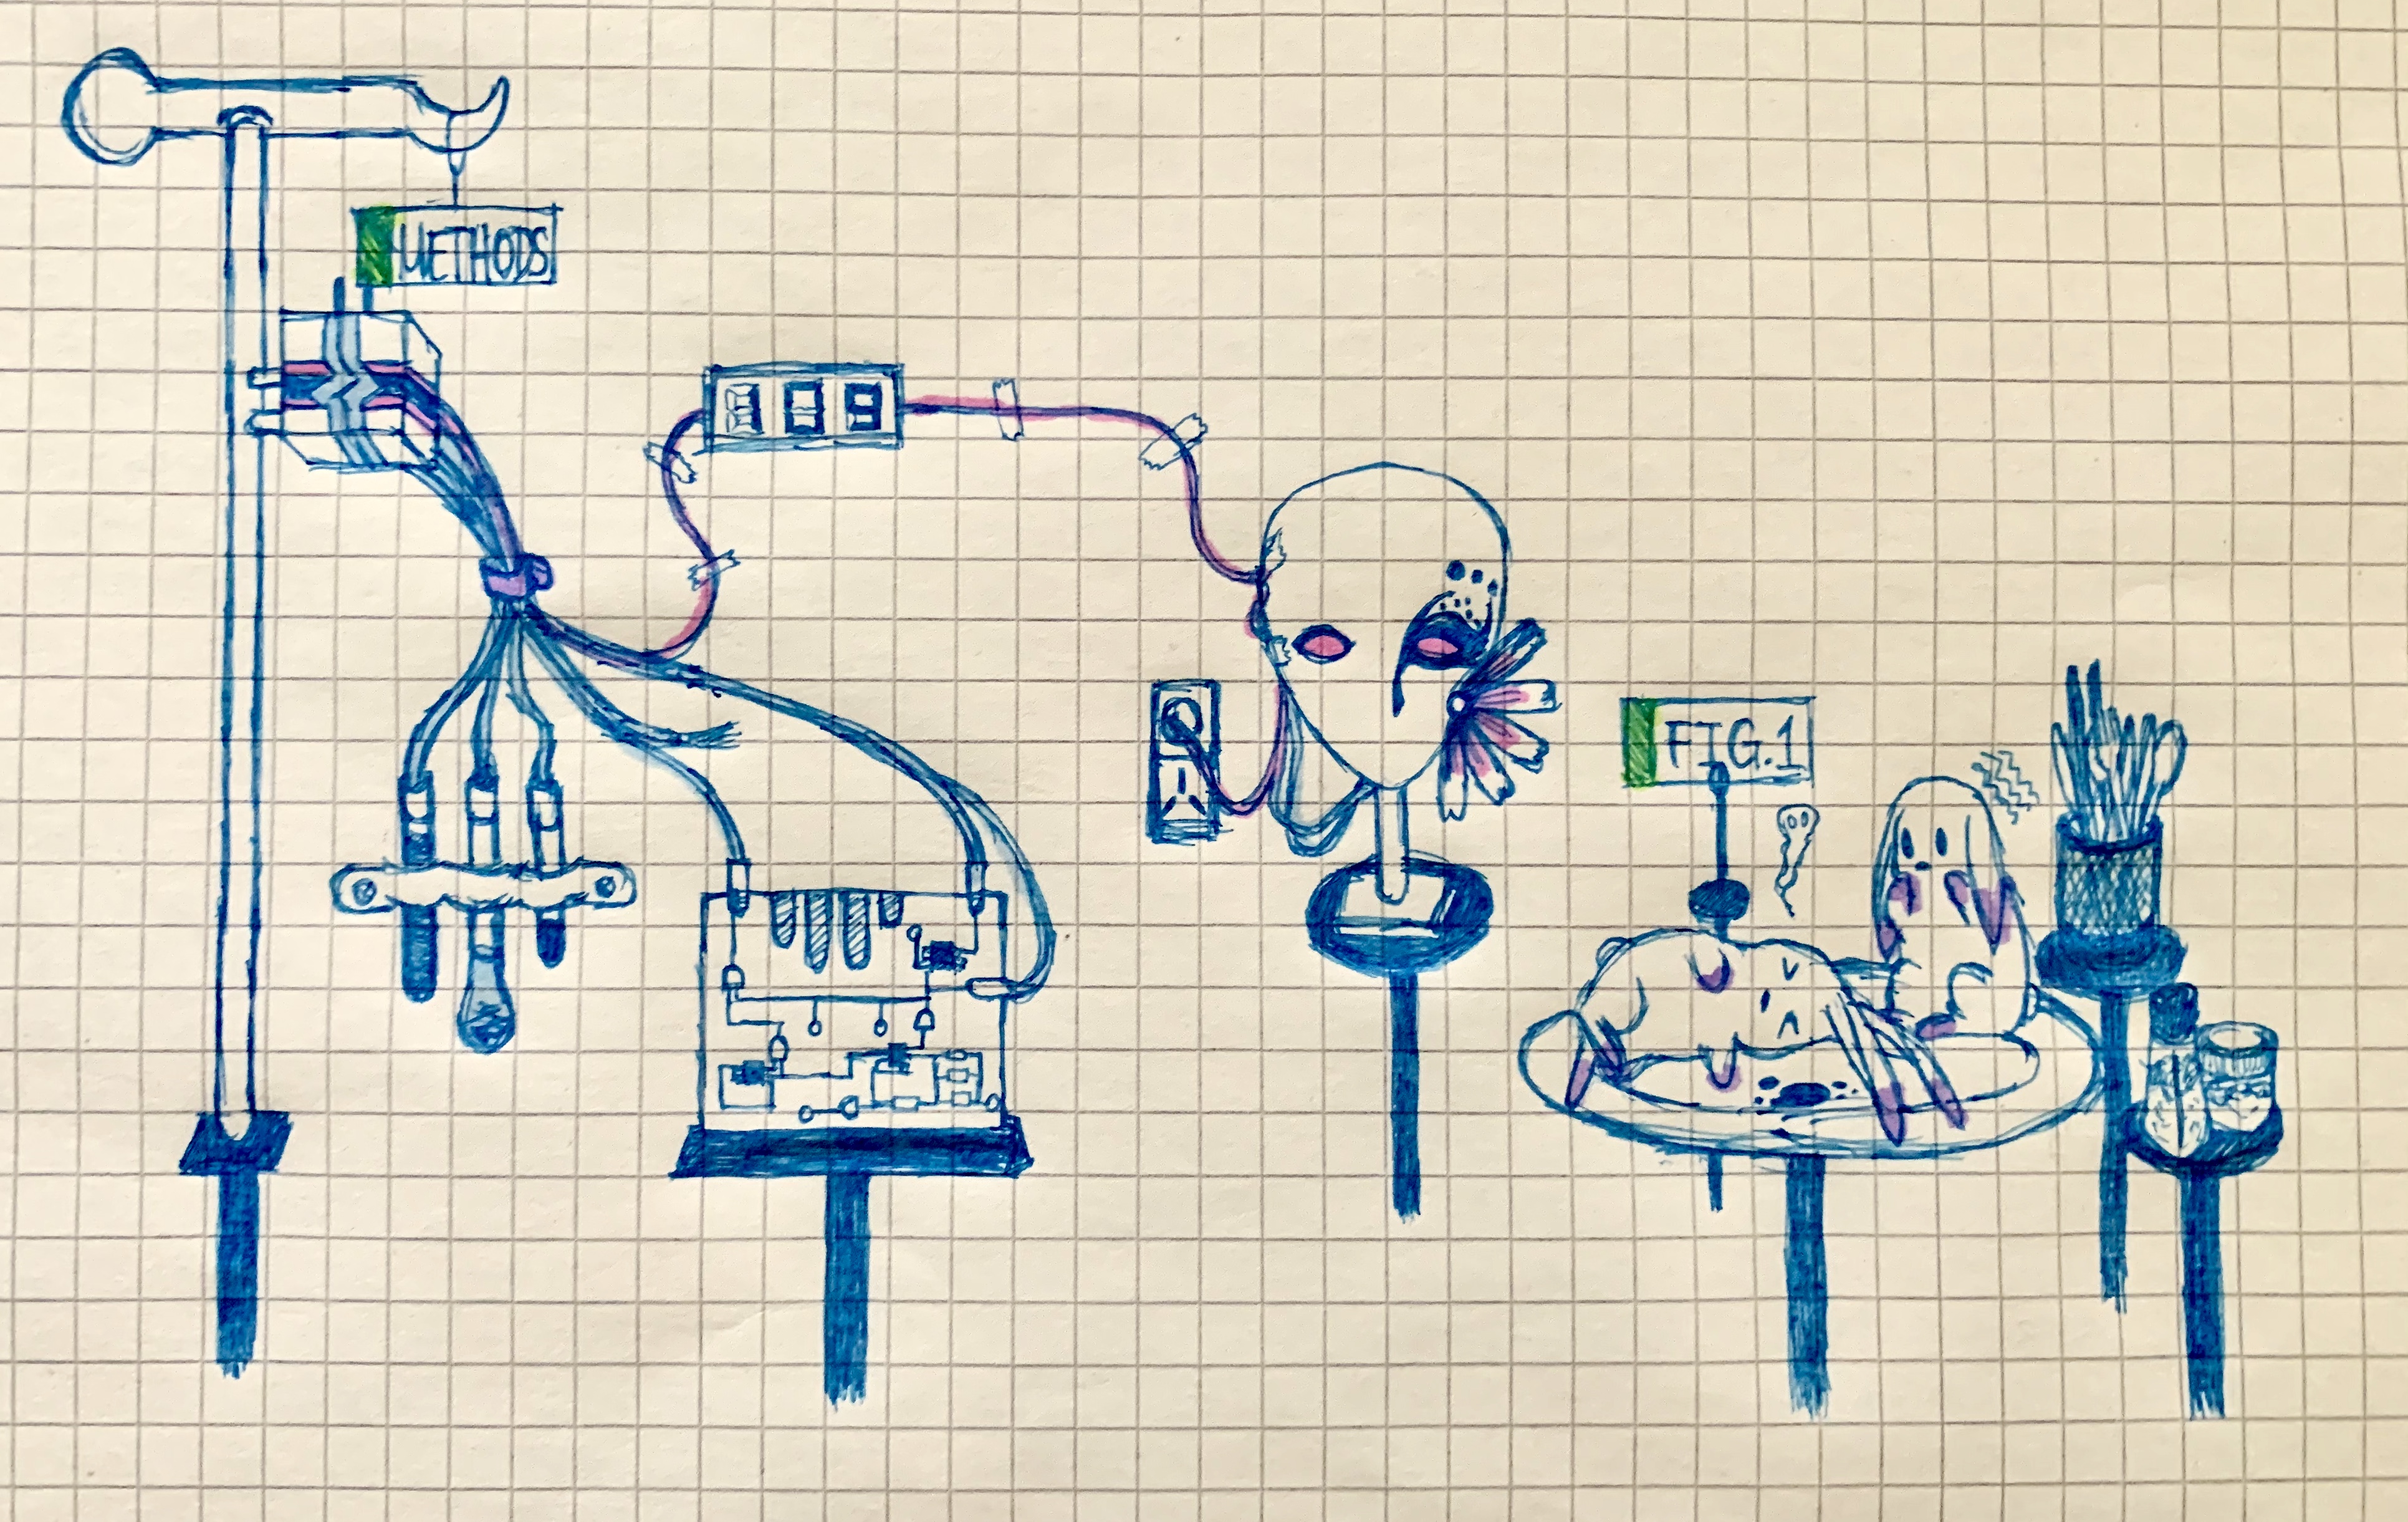 METHODS
09
FIG.1